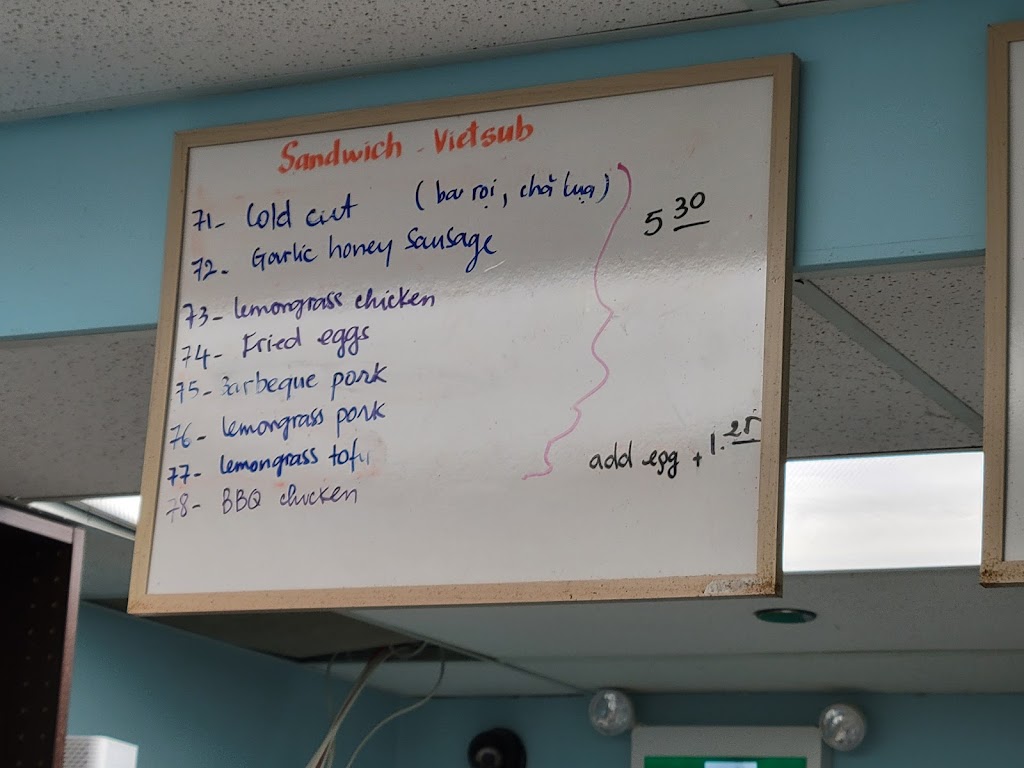 Sandwich - Vietsub
71- Cold cut (ba rọi, chả lụa)
72- Garlic honey Sausage
73- lemongrass chicken
74- Fried eggs
75- Barbeque pork
76- lemongrass pork
77- lemongrass tofu
78- BBQ chicken
5 30
add egg + 1.25